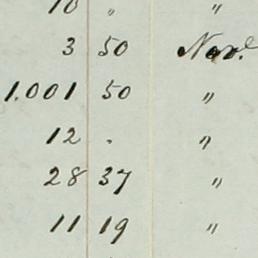 10 " "
3 50 Nov.
1.001 50 "
12 . "
28 37 "
11 19 "